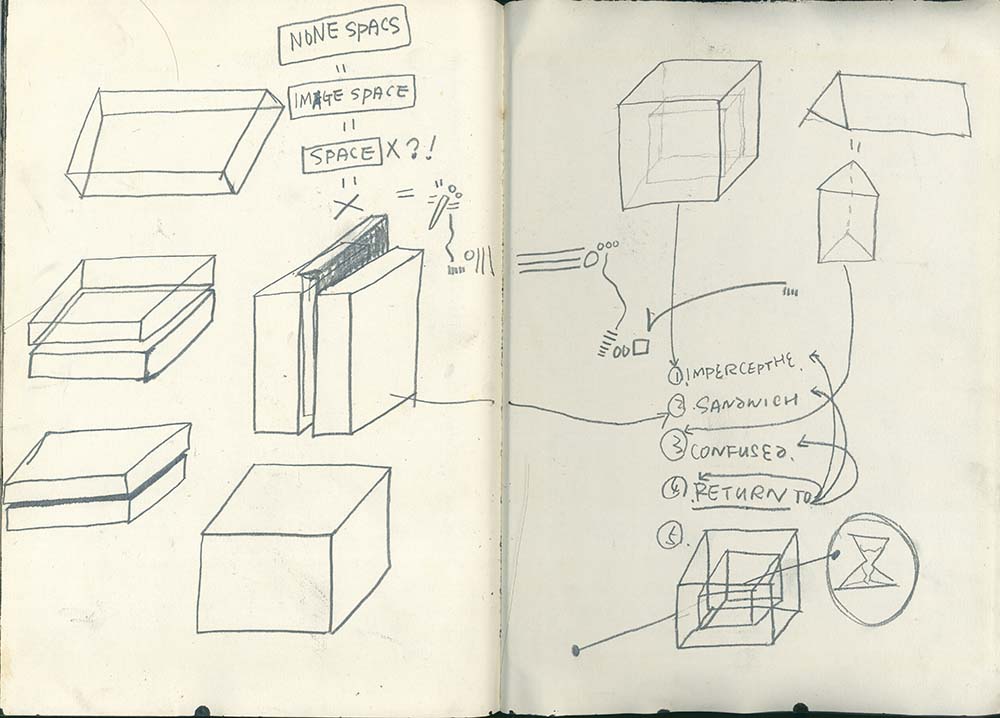 NONE SPACS
=
IMAGE SPACE
=
SPACE X?!
=
X
①.IMPERCEPTHE.
②.SANDWICH
③CONFUSED.
④.RETURN TO
⑤.